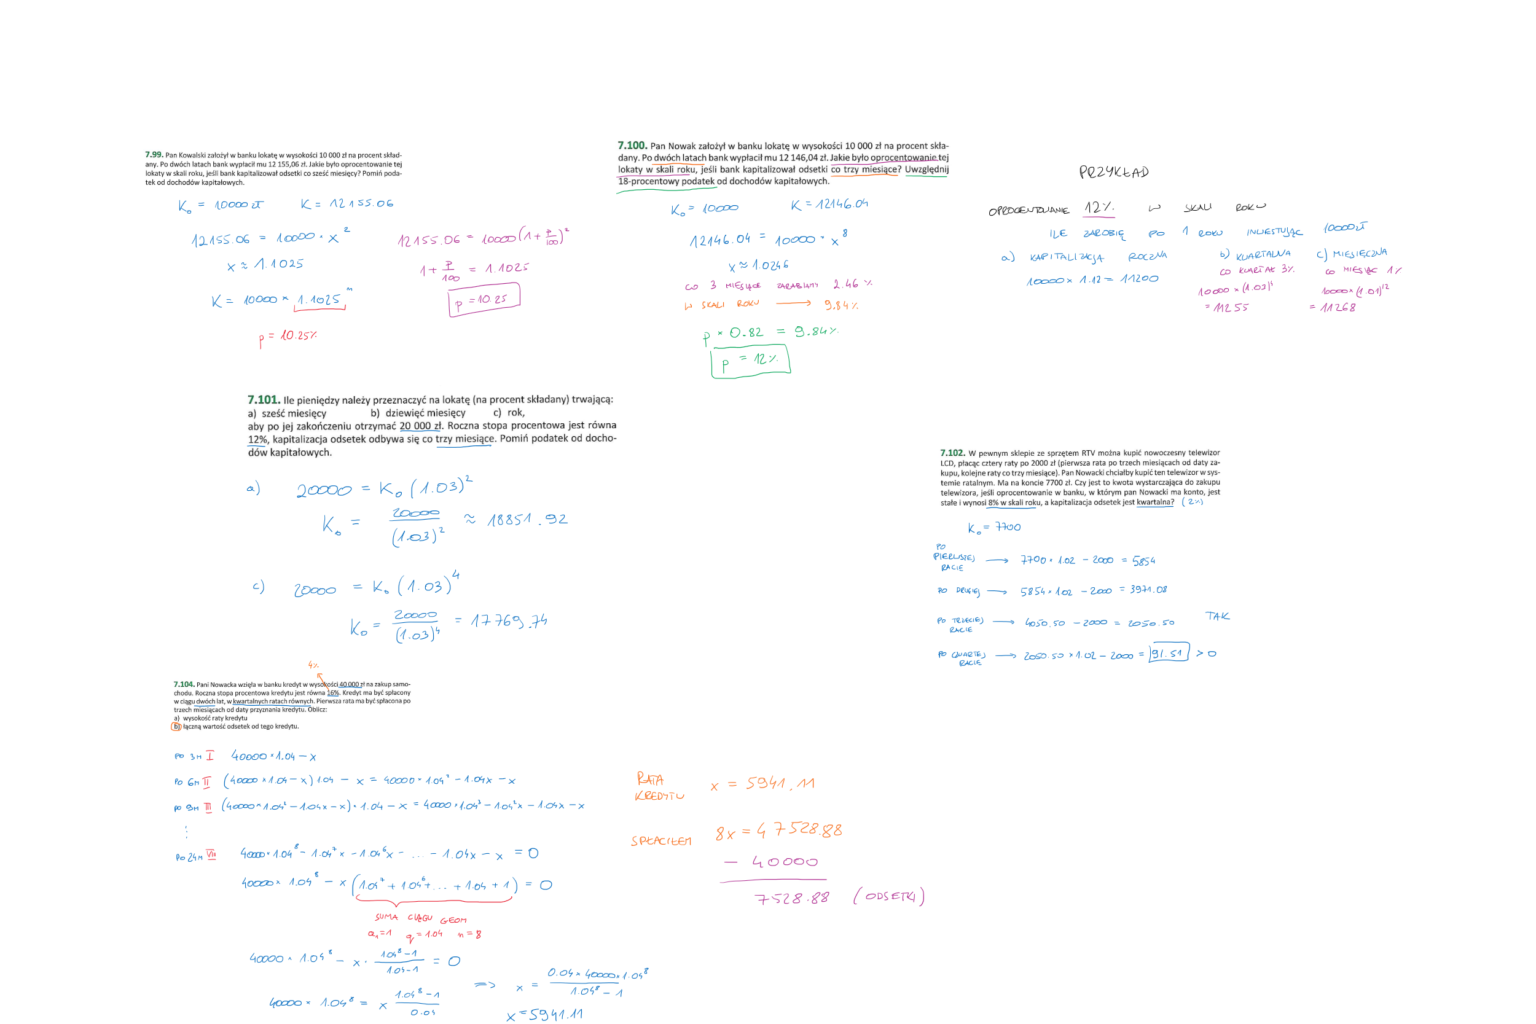 7.99. Pan Kowalski założył w banku lokatę w wysokości 10 000 zł na procent skład-
any. Po dwóch latach bank wypłacił mu 12 155,06 zł. Jakie było oprocentowanie tej
lokaty w skali roku, jeśli bank kapitalizował odsetki co sześć miesięcy? Pomiń poda-
tek od dochodów kapitałowych.
K₀ = 10000 zł K = 12155.06
12155.06 = 10000 · x²
x ≈ 1.1025
K = 10000 * 1.1025ⁿ
p = 10.25%
12155.06 = 10000(1 + p/100)²
1 + p/100 = 1.1025
p = 10.25
7.100. Pan Nowak założył w banku lokatę w wysokości 10 000 zł na procent skła-
dany. Po dwóch latach bank wypłacił mu 12 146,04 zł. Jakie było oprocentowanie tej
lokaty w skali roku, jeśli bank kapitalizował odsetki co trzy miesiące? Uwzględnij
18-procentowy podatek od dochodów kapitałowych.
K₀ = 10000 K = 12146.04
12146.04 = 10000 · x⁸
x ≈ 1.0246
CO 3 MIESIĄCE ZARABIAMY 2.46 %
W SKALI ROKU → 9.84%
p * 0.82 = 9.84%
p = 12%
PRZYKŁAD
OPROCENTOWANIE 12% W SKALI ROKU
ILE ZAROBIĘ PO 1 ROKU INWESTUJĄC 10000 zł
a) KAPITALIZACJA ROCZNA
10000 × 1.12 = 11200
b) KWARTALNA
CO KWARTAŁ 3%
10000 × (1.03)⁴
= 11255
c) MIESIĘCZNA
CO MIESIĄC 1%
10000 × (1.01)¹²
= 11268
7.101. Ile pieniędzy należy przeznaczyć na lokatę (na procent składany) trwającą:
a) sześć miesięcy b) dziewięć miesięcy c) rok,
aby po jej zakończeniu otrzymać 20 000 zł. Roczna stopa procentowa jest równa
12%, kapitalizacja odsetek odbywa się co trzy miesiące. Pomiń podatek od docho-
dów kapitałowych.
a) 20000 = K₀ (1.03)²
K₀ = 20000/(1.03)² ≈ 18851.92
c) 20000 = K₀ (1.03)⁴
K₀ = 20000/(1.03)⁴ = 17769.74
7.102. W pewnym sklepie ze sprzętem RTV można kupić nowoczesny telewizor
LCD, płacąc cztery raty po 2000 zł (pierwsza rata po trzech miesiącach od daty za-
kupu, kolejne raty co trzy miesiące). Pan Nowacki chciałby kupić ten telewizor w sys-
temie ratalnym. Ma na koncie 7700 zł. Czy jest to kwota wystarczająca do zakupu
telewizora, jeśli oprocentowanie w banku, w którym pan Nowacki ma konto, jest
stałe i wynosi 8% w skali roku, a kapitalizacja odsetek jest kwartalna? (2%)
K₀ = 7700
PO PIERWSZEJ RACIE → 7700 · 1.02 − 2000 = 5854
PO DRUGIEJ → 5854 · 1.02 − 2000 = 3971.08
PO TRZECIEJ RACIE → 4050.50 − 2000 = 2050.50 TAK
PO CZWARTEJ RACIE → 2050.50 × 1.02 − 2000 = 91.51 > 0
4%
7.104. Pani Nowacka wzięła w banku kredyt w wysokości 40 000 zł na zakup samo-
chodu. Roczna stopa procentowa kredytu jest równa 16%. Kredyt ma być spłacony
w ciągu dwóch lat, w kwartalnych ratach równych. Pierwsza rata ma być spłacona po
trzech miesiącach od daty przyznania kredytu. Oblicz:
a) wysokość raty kredytu
b) łączną wartość odsetek od tego kredytu.
PO 3M I 40000 · 1.04 − x
PO 6M II (40000 × 1.04 − x) 1.04 − x = 40000 · 1.04² − 1.04x − x
PO 9M III (40000 * 1.04² − 1.04x − x) · 1.04 − x = 40000 · 1.04³ − 1.04²x − 1.04x − x
⋮
PO 24M VIII 40000 · 1.04⁸ − 1.04⁷x − 1.04⁶x − ... − 1.04x − x = 0
40000 × 1.04⁸ − x (1.04⁷ + 1.04⁶ + ... + 1.04 + 1) = 0
SUMA CIĄGU GEOM
a₁ = 1 q = 1.04 n = 8
40000 · 1.04⁸ − x · (1.04⁸ − 1)/(1.04 − 1) = 0
40000 × 1.04⁸ = x (1.04⁸ − 1)/0.04
=> x = (0.04 × 40000 × 1.04⁸)/(1.04⁸ − 1)
x = 5941.11
RATA KREDYTU x = 5941.11
SPŁACIŁEM 8x = 47528.88
− 40000
7528.88 (ODSETKI)